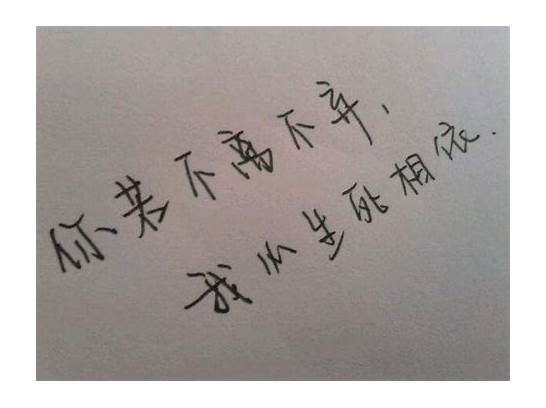 你若不离不弃,
我必生死相依.